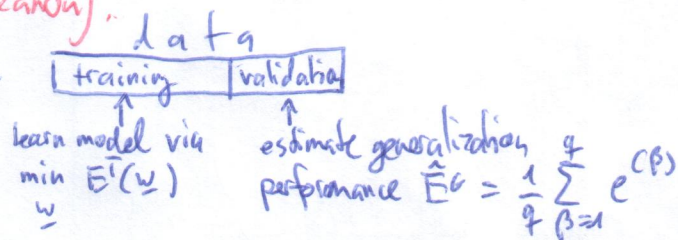 data
training validation
learn model via estimate generalization
min E^T(w) performance Ê^G = 1/q ∑_{β=1}^{q} e^{(β)}
w